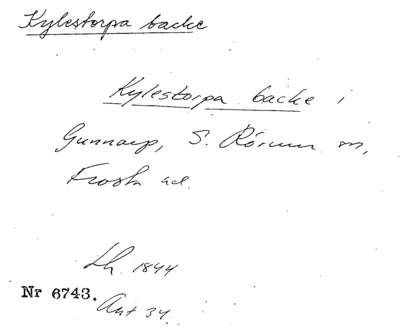 Kylestorpa backe
Kylestorpa backe i
Gunnarp, S. Rörum sn,
Frosta hd.
Lh. 1844
Nr 6743.
Ant 34.